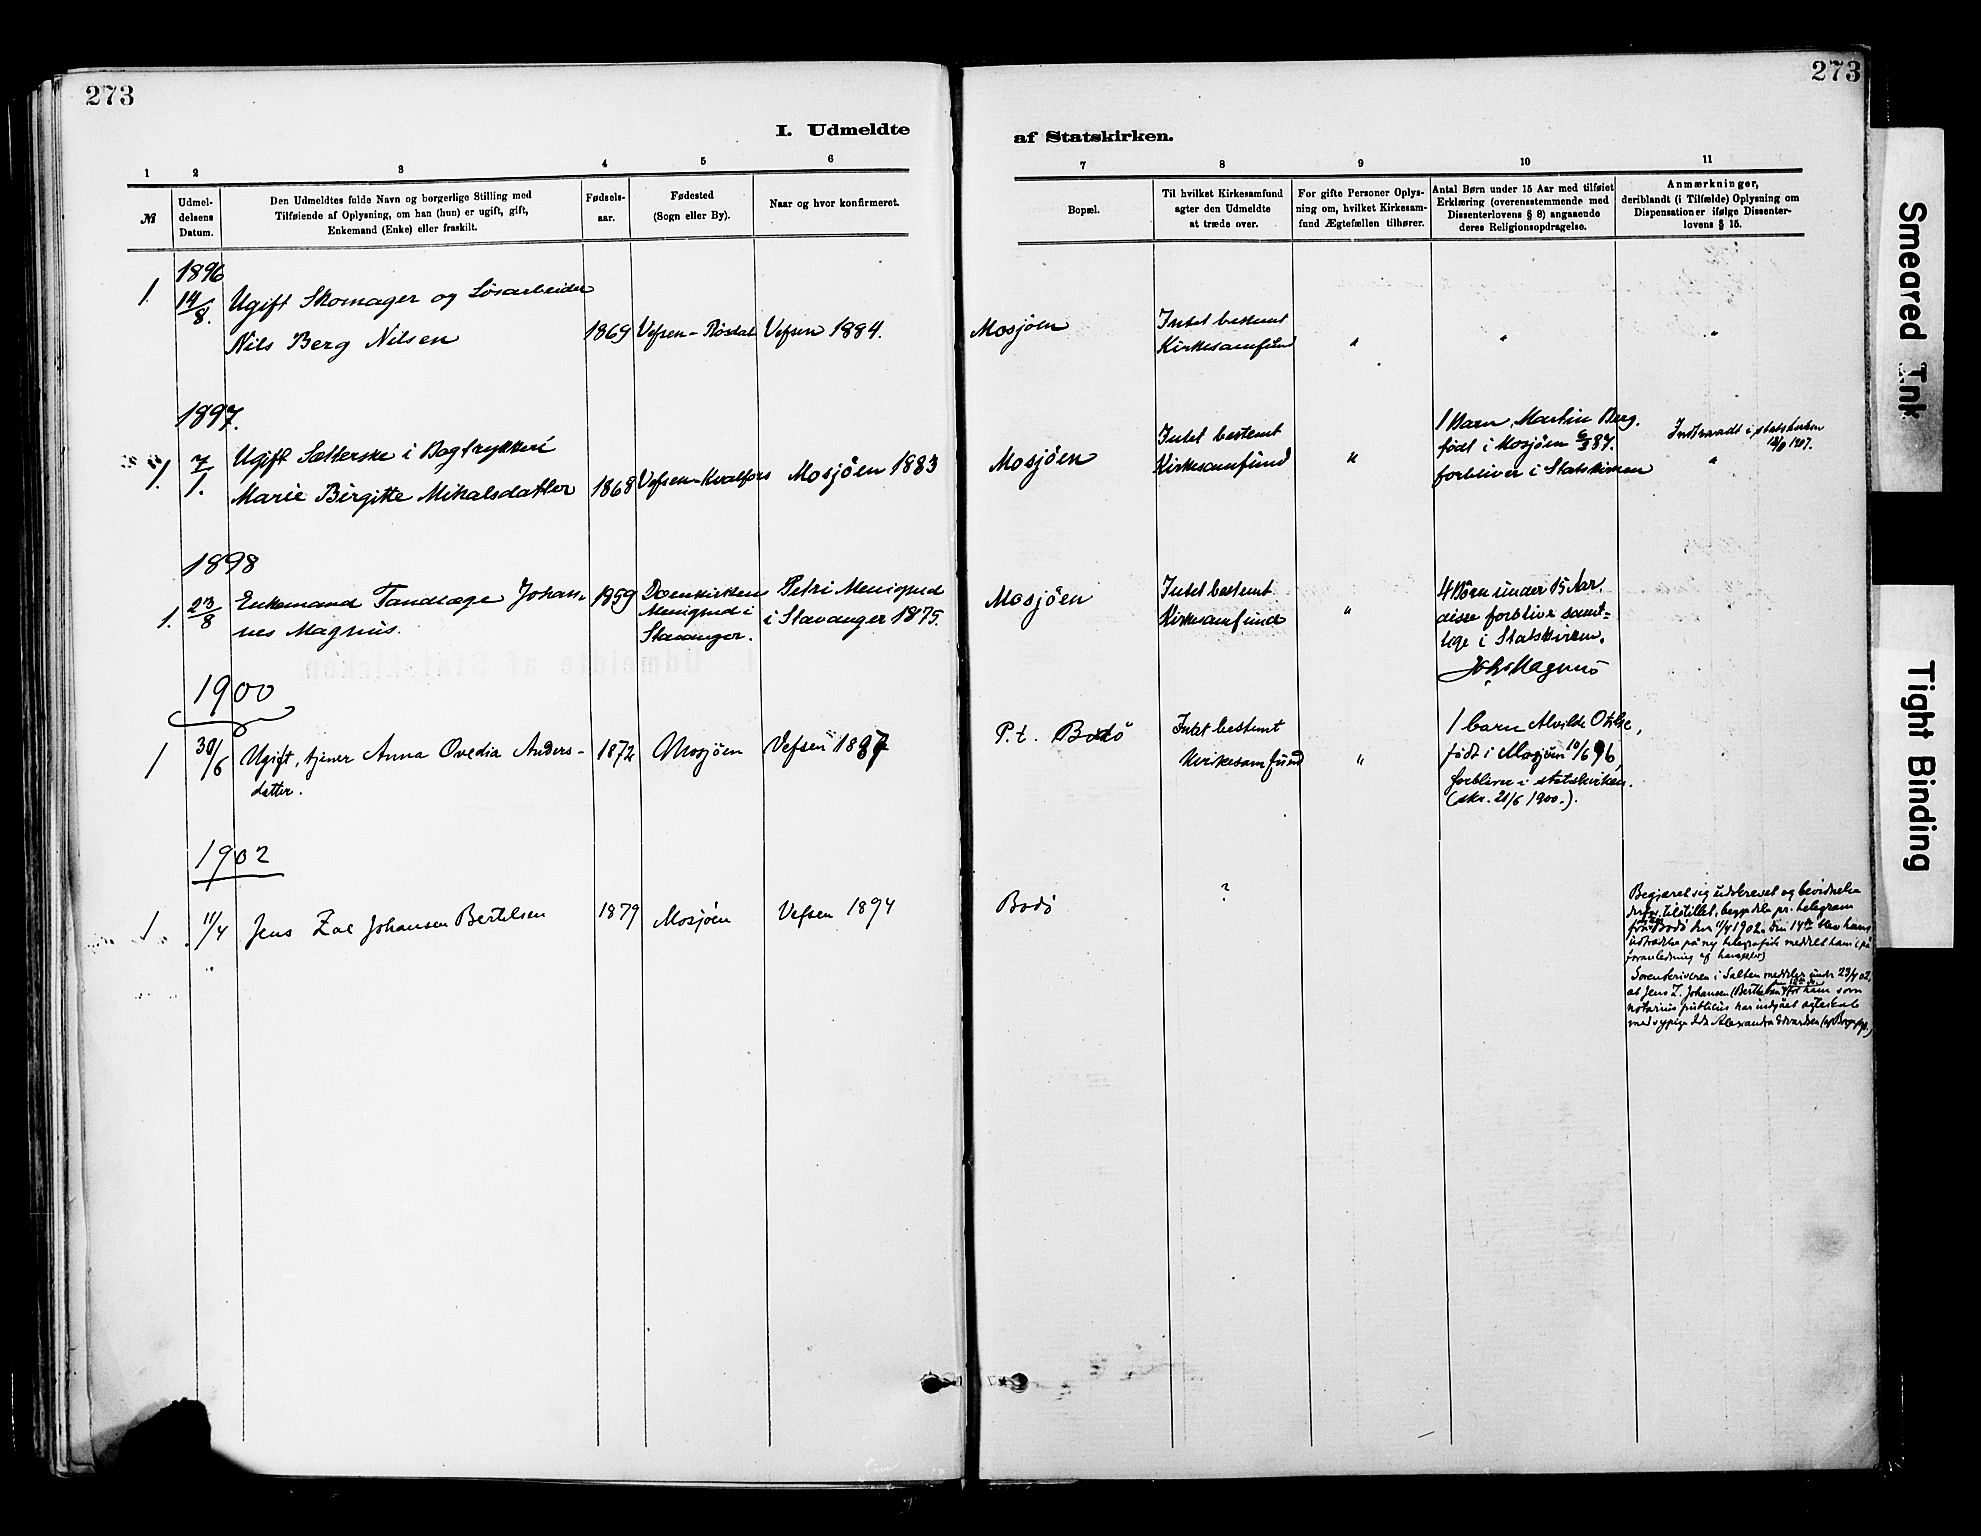 273
273
I. Udmeldte
af Statskirken.
1 2 3 4 5 6
7 8 9 10 11
№
Udmel-
delsens
Datum.
Den Udmeldtes fulde Navn og borgerlige Stilling med
Tilføiende af Oplysning, om han (hun) er ugift, gift,
Enkemand (Enke) eller fraskilt.
Fødsels-
aar.
Fødested
(Sogn eller By).
Naar og hvor konfirmeret.
Bopæl.
Til hvilket Kirkesamfund
agter den Udmeldte
at træde over.
For gifte Personer Oplys-
ning om, hvilket Kirkesam-
fund Ægtefællen tilhører.
Antal Børn under 15 Aar med tilføiet
Erklæring (overensstemmende med
Dissenterlovens § 8) angaaende
deres Religionsopdragelse.
Anmærkninger,
deriblandt (i Tilfælde) Oplysning om
Dispensationer ifølge Dissenter-
lovens § 15.
1896
1. 14/8. Ugift Skomager og Løsarbeider
Nils Berg Nilsen
1869
Vefsen
Vefsen 1884.
Mosjøen
Intet bestemt
Kirkesamfund
"
"
"
1897.
1. 7/1. Ugift Sætterske i Bogtrykkeri
Marie Birgitte Mikalsdatter
1868
Vefsen-Kvalfors
Mosjøen 1883
Mosjøen
Intet bestemt
Kirkesamfund
"
1 Barn, Martin Berg,
født i Mosjøen 6/3 87.
forbliver i Statskirken
Indtraadt i statskirken
1907.
"
1898
1. 23/8 Enkemand Tandlæge Johan-
nes Magnus.
1859
Domkirkens
Menighed i
Stavanger.
Petri Menighed
i Stavanger 1875.
Mosjøen
Intet bestemt
Kirkesamfund
"
4 Børn under 15 Aar,
disse forblive samt-
lige i Statskirken.
Johs Magnus
1900
1 30/6 Ugift, tjener Anna Ovedia Anders-
datter.
1872
Mosjøen
Vefsen 1887
P.t. Bodø
Intet bestemt
Kirkesamfund
"
1 barn Alvilde
født i Mosjøen 10/6 96,
forbliver i statskirken.
(skr. 21/6 1900.).
1902
1 11/4 Jens Zal Johansen Bertelsen
1879
Mosjøen
Vefsen 1894
Bodø
?
Begjæret sig udskrevet og bevidnelse
derfor tilstillet, pr. telegram
fra Bodø den 11/4 1902. Den 14de blev hans
udtrædelse på ny telegrafisk meddelt ham
foranledning af
Sorenskriveren i Salten meddeler under 23/4 02,
at Jens Z. Johansen (Bertelsen) for ham som
notarius publicus har indgået ægteskab
med Alexandra Edvardsen
Smeared Ink
Tight Binding